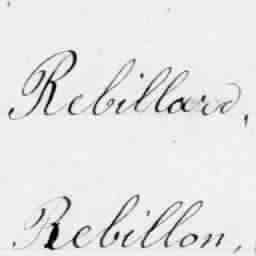 Rebillard,
Rebillon,